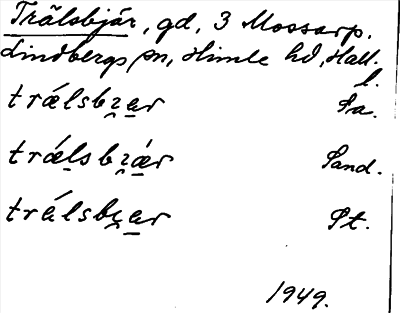 Trälsbjär, gd, 3 Mossarp.
Lindbergs sn, Himle hd, Hall.
l.
trǽlsbɀ̯a̲r Sa.
trǽl̲sbɀ̯á̲r Sand.
trǽlsbɀ̯a̲r St.
1949.